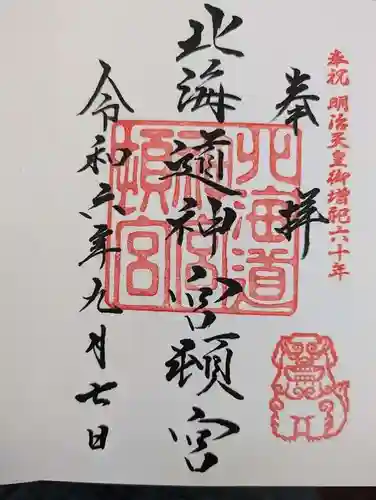 奉祝 明治天皇御増祀六十年
奉拝
北海道神宮頓宮
北海道神宮頓宮
令和六年九月七日